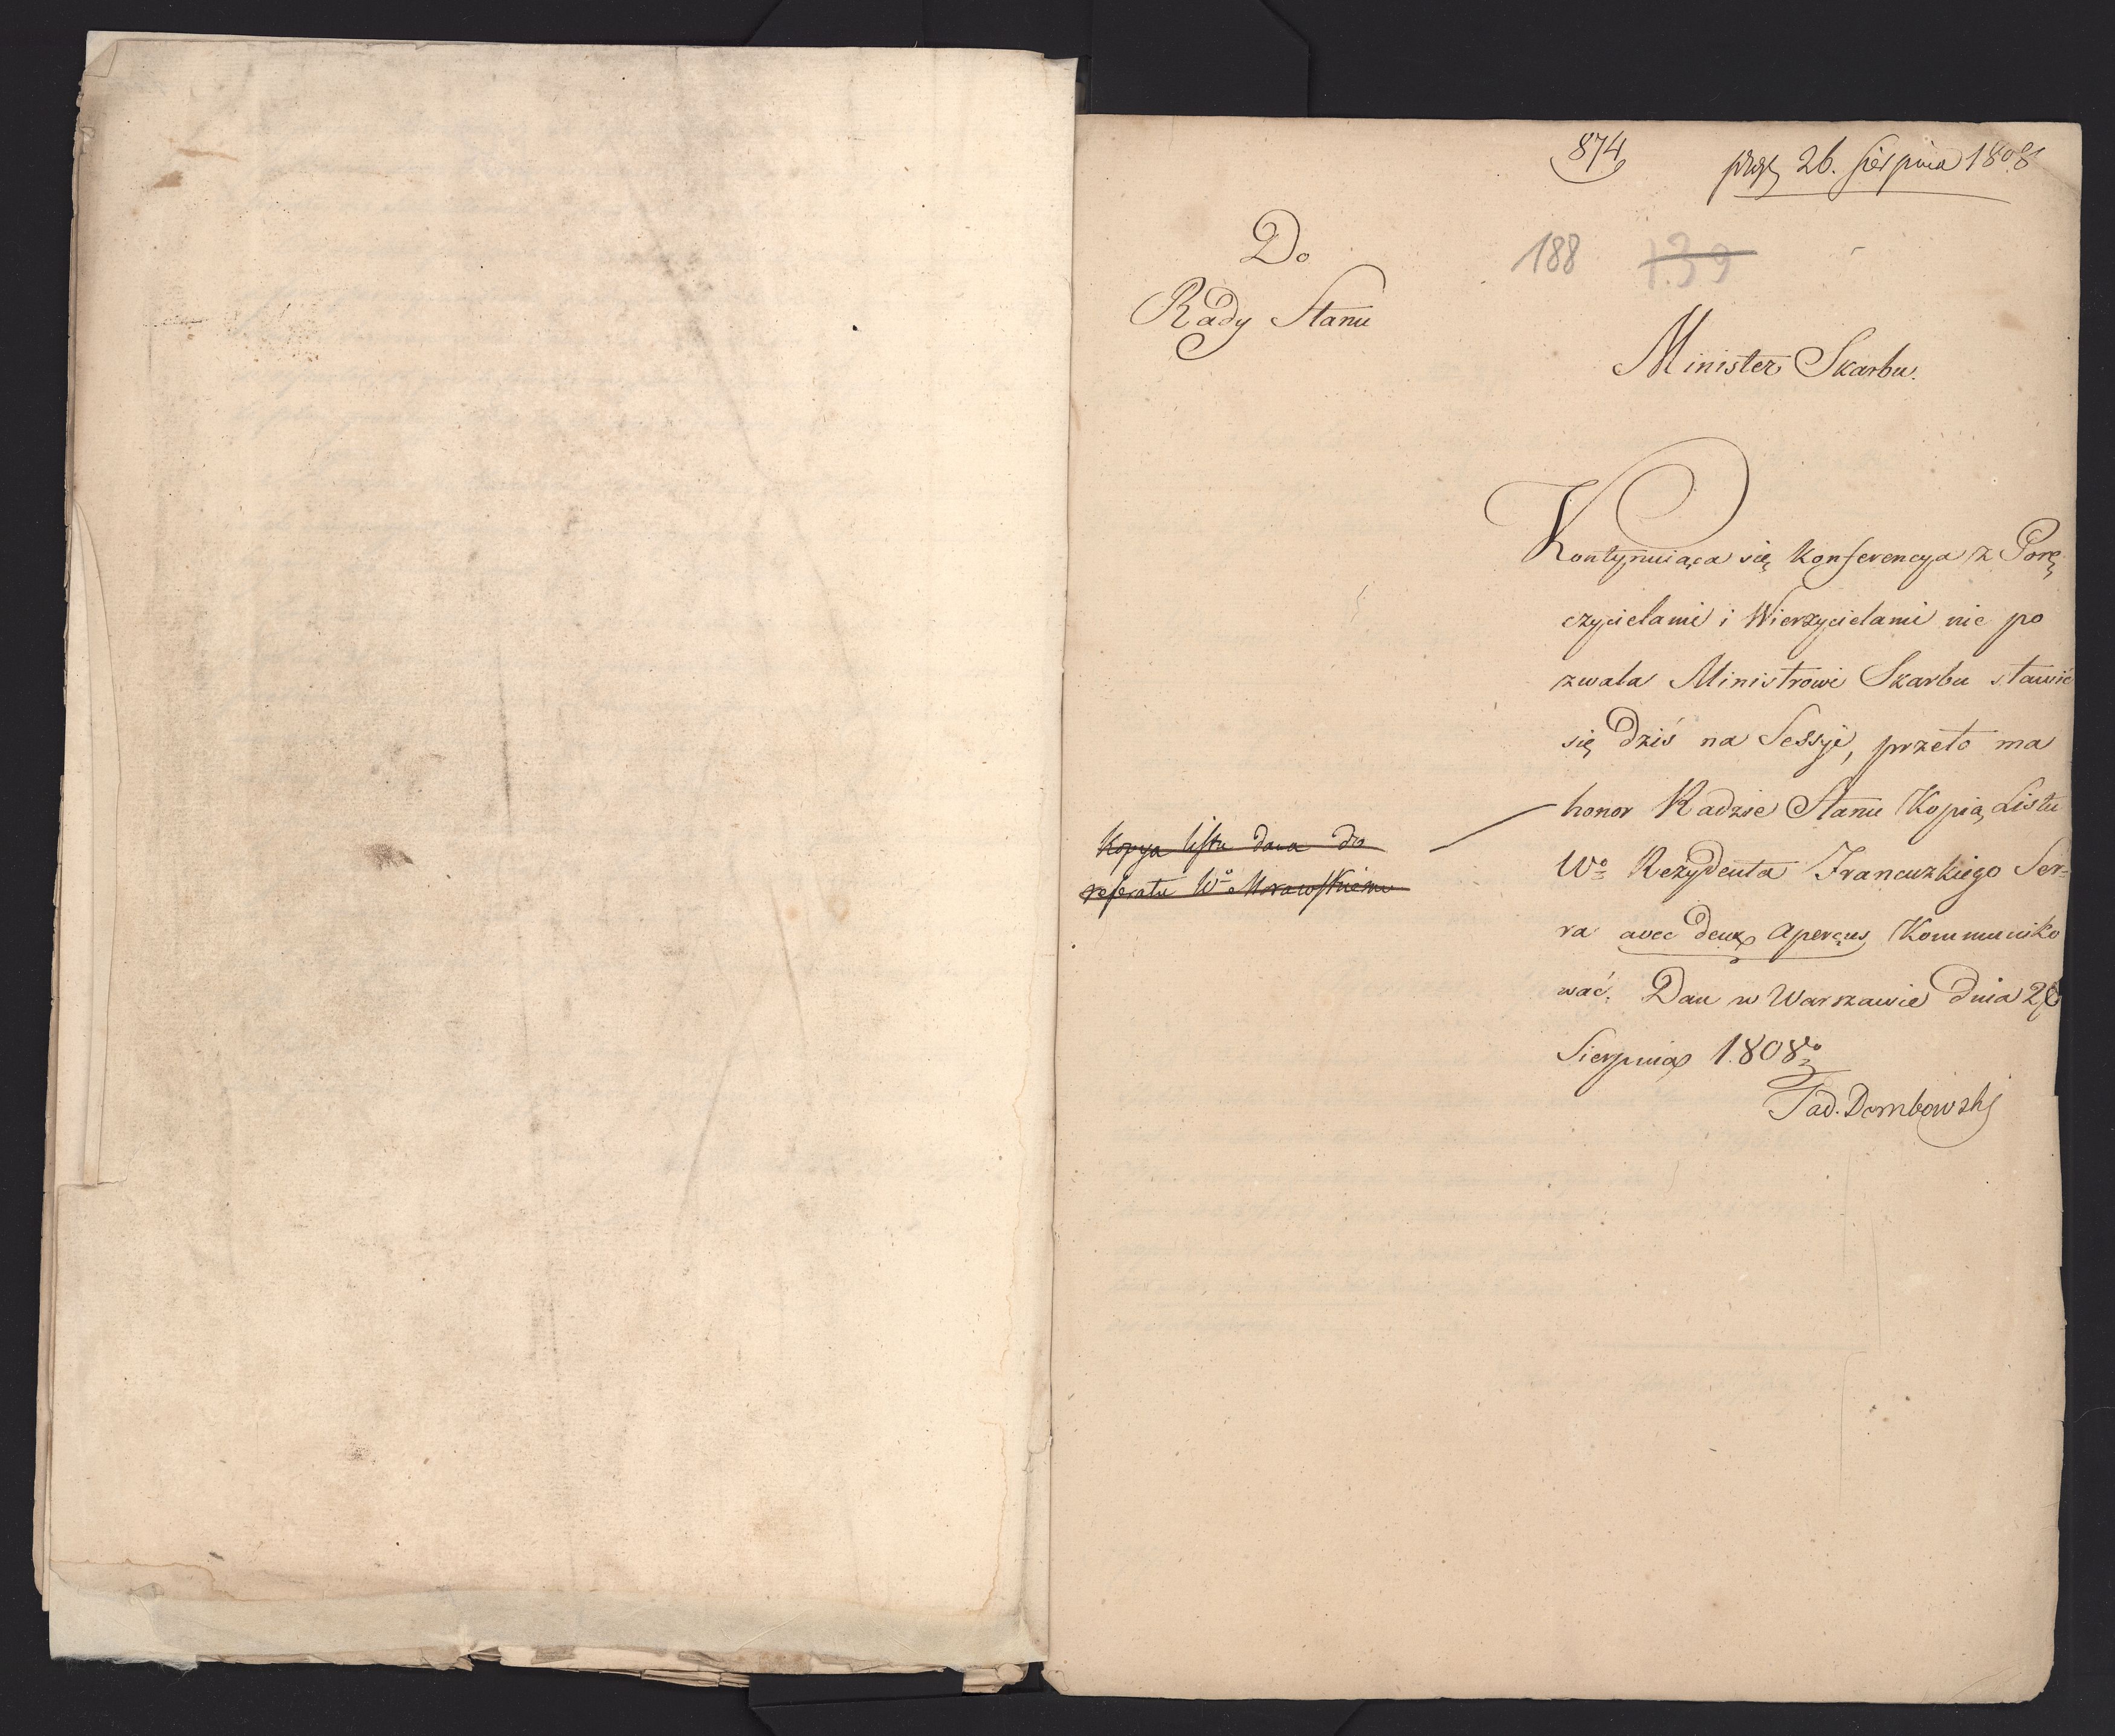 874
26. Sierpnia 1808
188 139
Do
Rady Stanu
Minister Skarbu.
Kontynuiąca się Konferencya z Porę
czycielami i Wierzycielami nie po
zwala Ministrowi Skarbu stawić
się dziś na Sessyi, przeto ma
honor Radzie Stanu Kopią Listu
Wo Rezydenta Francuzkiego Ser-
ra avec deux aperçus Kommuniko
wać. Dan w Warszawie dnia 26
Sierpnia 1808 ro
Tad. Dembowski
Kopya listu dana do
referatu Wo Morawskiemu